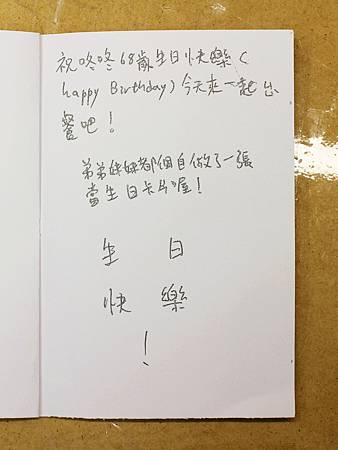 祝咚咚68歲生日快樂(
happy Birthday)今天來一起出
餐吧!
弟弟妹妹都個自做了一張
當生日卡片喔!
生日
快樂
!